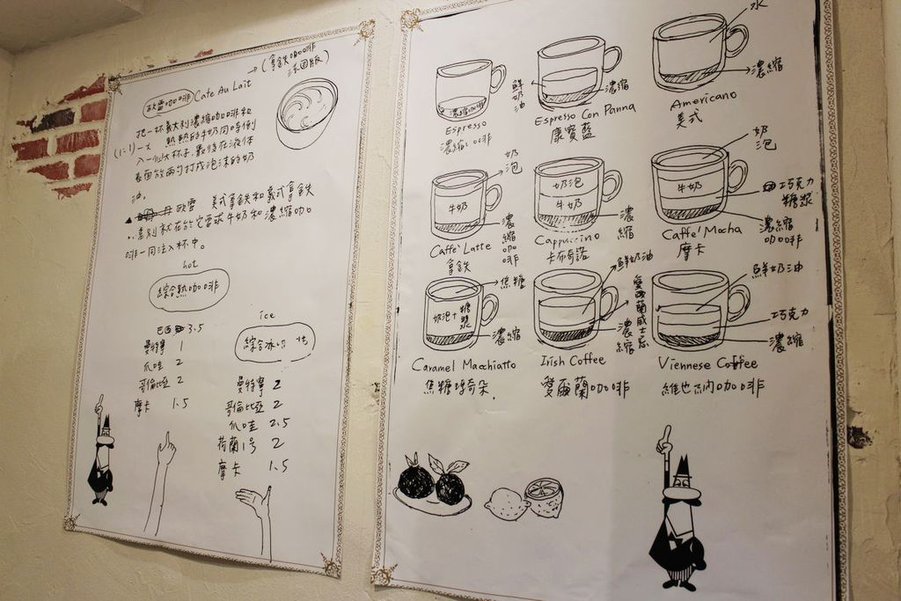 →(拿鐵咖啡
法國版)
欧雷咖啡 Cafe Au Lait
把一杯義大利濃縮咖啡和
(1:1) 一大 熱熱的牛奶同時倒
入一個大杯子，最後在液体
表面放兩勺打成泡沫的奶
油。
▲ 欧雷 美式拿鐵和義式拿鐵
差別就在於它要求牛奶和濃縮咖
啡一同注入杯中。
hot
綜合熱咖啡
巴西 3.5
曼特寧 1
爪哇 2
哥倫比亞 2
摩卡 1.5
ice
綜合冰咖啡
曼特寧 2
哥倫比亞 2
爪哇 2.5
荷蘭1号 2
摩卡 1.5
濃縮咖啡
Espresso
濃縮咖啡
鮮奶油
濃縮
Espresso Con Panna
康寶藍
水
濃縮
Americano
美式
奶泡
牛奶
濃縮咖啡
Caffe' Latte
拿鐵
奶泡
牛奶
濃縮
Cappuccino
卡布奇諾
奶泡
牛奶
巧克力
糖漿
濃縮
咖啡
Caffe' Mocha
摩卡
焦糖
奶泡+糖漿
濃縮
Caramel Macchiatto
焦糖瑪奇朵.
鮮奶油
愛爾蘭威士忌
濃縮
Irish Coffee
愛爾蘭咖啡
鮮奶油
巧克力
濃縮
Viennese Coffee
維也納咖啡